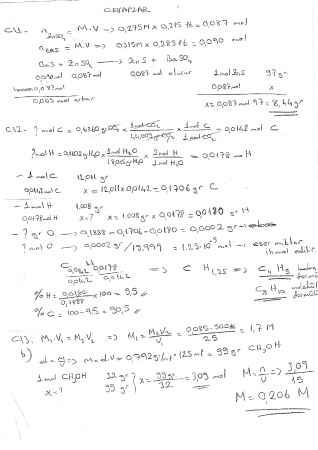 CEVAPLAR
C11- nZnSO4 = M.V => 0,275M x 0,315 lt = 0,087 mol
nBaS = M.V => 0,315M x 0,285 lt = 0,090 mol
BaS + ZnSO4 -> ZnS + BaSO4
0,090mol 0,087mol 0,087 mol oluşur 1mol ZnS 97 gr
harcanan 0,087mol 0,087mol x
0,003 mol artar x = 0,087mol.97 = 8,44gr
C12- ? mol C = 0,6260 gCO2 x 1molCO2/44,009 gCO2 x 1mol C/1molCO2 = 0,0142 mol C
?mol H = 0,1602 gH2O x 1mol H2O/18,015gr H2O x 2mol H/1mol H2O = 0,0178 mol H
- 1mol C 12,011 gr
0,0142mol C x = 12,011 x 0,0142 = 0,1706 gr C
- 1mol H 1.008 gr
0,0178mol H x=? x = 1.008gr x 0,0178 = 0,0180 gr H
- ? gr O -> 0,1888 - 0,1706 - 0,0180 = 0,0002 gr
? mol O -> 0,0002 gr / 15,999 = 1.25.10⁻⁵ mol -> eser miktar ihmal edilir.
C 0,0142/0,0142 H 0,0178/0,0142 => C H1,25 => C4 H5 basit formül
C8 H10 molekül formülü
%H = 0,0180/0,1888 x 100 = 9,5
%C = 100 - 9,5 = 90,5
C13. M1.V1 = M2.V2 => M1 = M2.V2/V1 = 0,085.500ml/25 = 1,7 M
b) d = g/v => m = d.v = 0,792gr/ml.125ml = 99 gr CH3OH
1mol CH3OH 32 gr
x=? 99 gr } x = 99gr/32 = 3,09 mol M = n/V => 3,09/15
M = 0,206 M